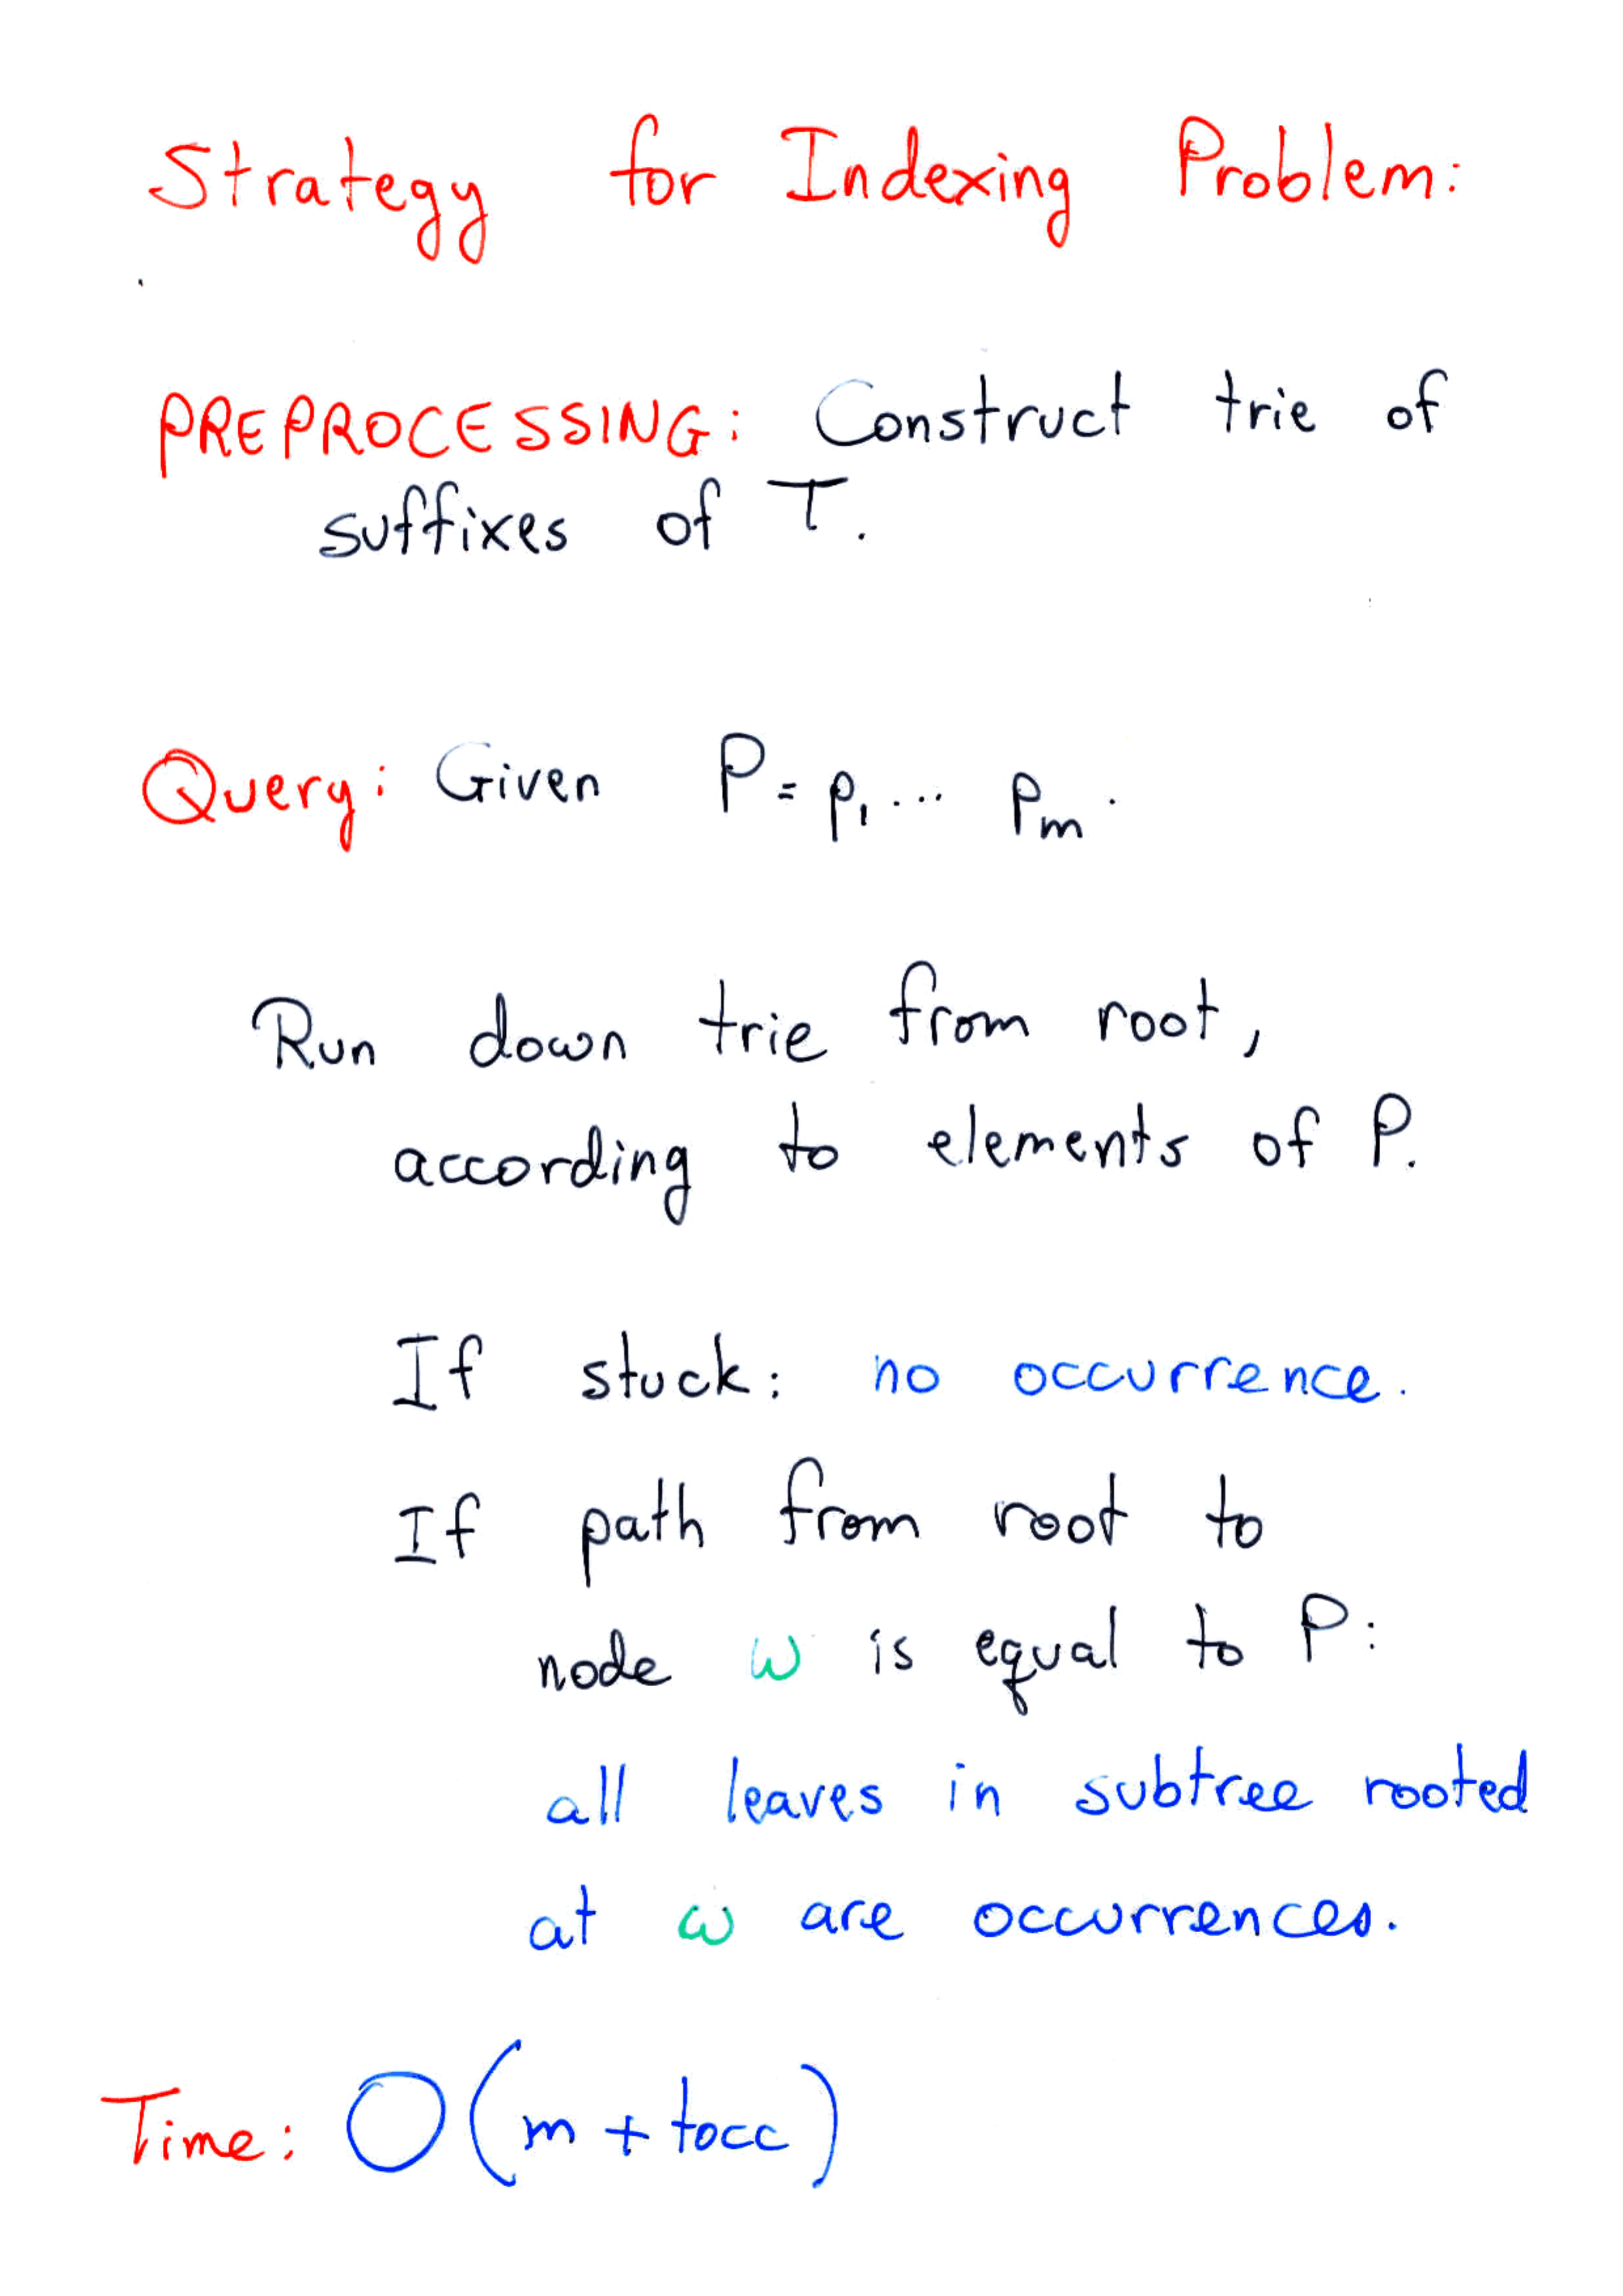 Strategy for Indexing Problem:
PREPROCESSING: Construct trie of
suffixes of T.
Query: Given P = p₁ ... pₘ.
Run down trie from root,
according to elements of P.
If stuck: no occurrence.
If path from root to
node ω is equal to P:
all leaves in subtree rooted
at ω are occurrences.
Time: O(m + tocc)